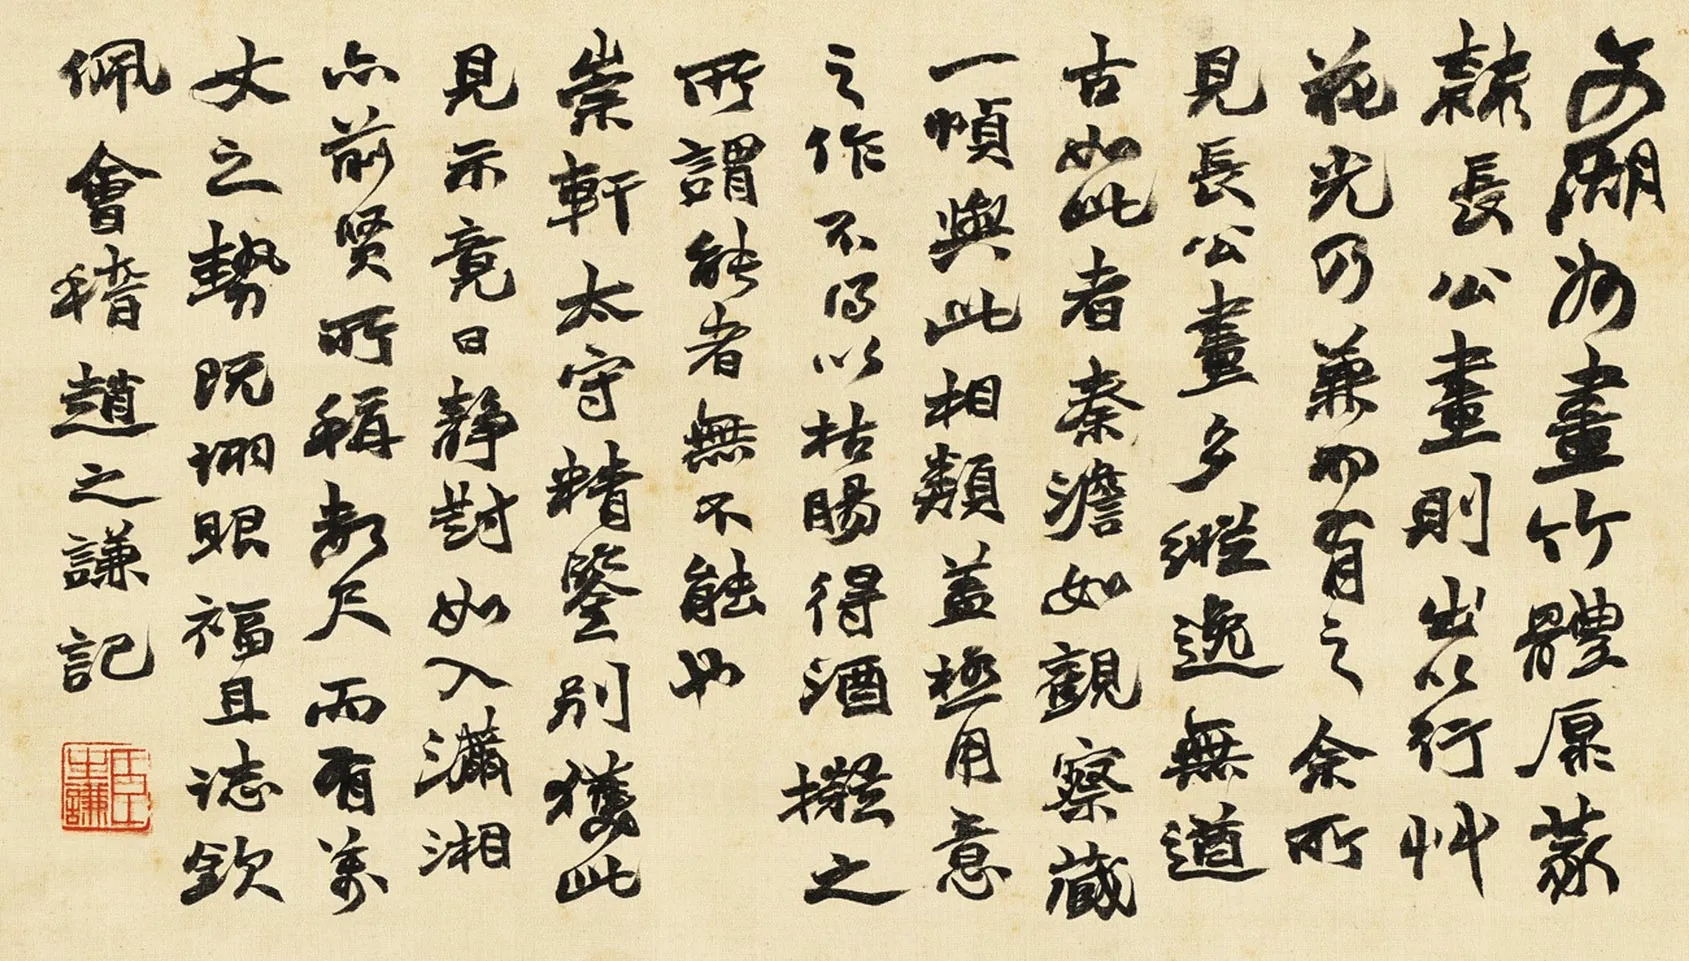 文湖州畫竹體原篆
隸長公畫則出以行艸
花光乃兼而有之余所
見長公畫多縱逸無遒
古如此者秦澹如觀察藏
一幀與此相類蓋極用意
之作不得以枯腸得酒擬之
所謂能者無不能也
崇軒太守精鑒別獲此
見示竟日靜對如入瀟湘
亦前賢所稱數尺而有萬
丈之勢既詡眼福且誌欽
佩會稽趙之謙記
臣之謙